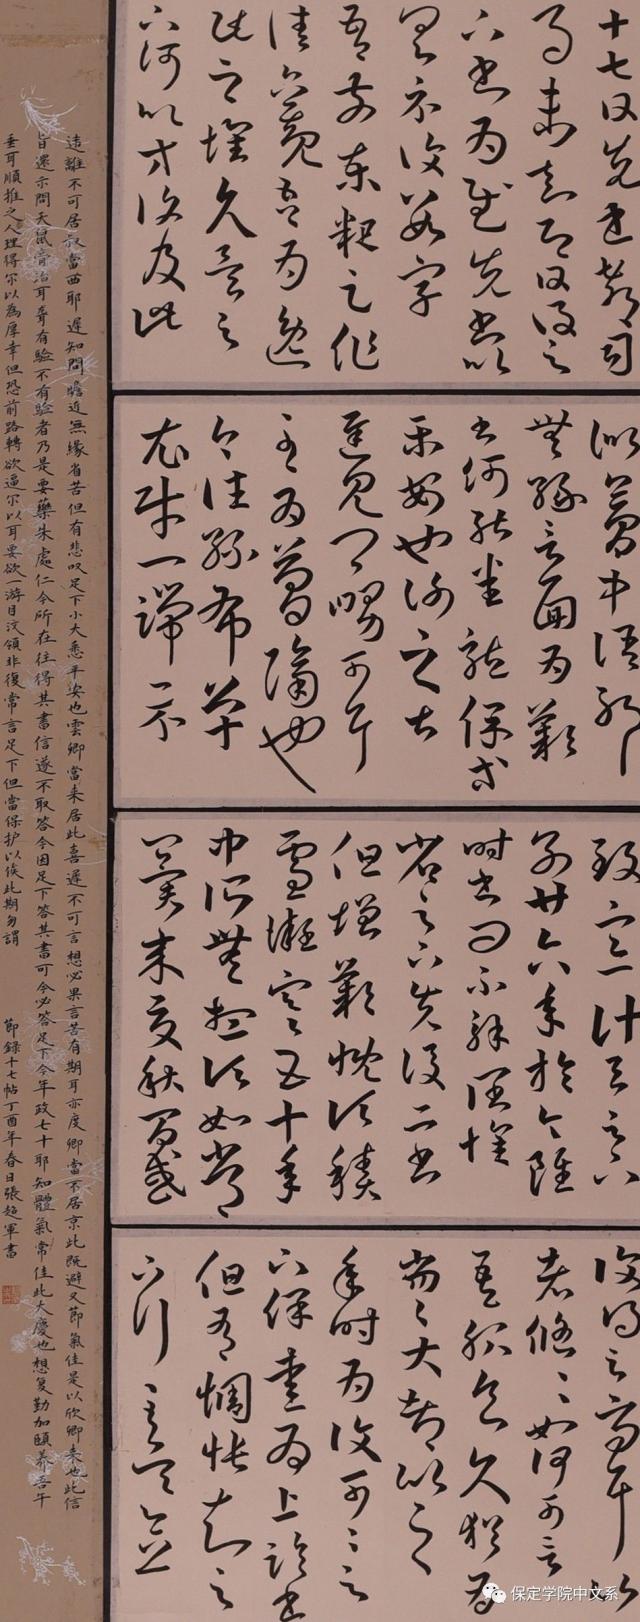 十七日先書郗司
馬未去即日得足
下書為慰先書以
具示復數字
吾前東粗足作
佳觀吾為逸
民之懷久矣足
下何以方復及此
似夢中語耶
無緣言面為歎
書何能悉龍保等
平安也謝之甚
遲見卿舅可耳
至為簡隔也
今往絲布單
衣財一端示
致意計與足下
別廿六年於今雖
時書問不解闊懷
省足下先後二書
但增歎慨頃積
雪凝寒五十年
中所無想頃如常
冀來夏秋間或
復得足下問耳比
者悠悠如何可言
吾服食久猶為
劣劣大都比之
年時為復可可足
下保愛為上臨書
但有惆悵知足
下行至吳念
違離不可居叔當西耶遲知問瞻近無緣省苦但有悲叹足下小大悉平安也雲卿當来居此喜遲不可言想必果言苦有期耳亦度卿當不居京此既避又節氣佳是以欣卿来也此信
旨還示問天鼠膏治耳聾有驗不有验者乃是要藥朱處仁今所在往得其書信遂不取答今因足下答其書可令必答足下今年政七十耶知體氣常佳此大慶也想复勤加頤養吾年
垂耳順推之人理得尔以為厚幸但恐前路轉欲逼尔以耳要欲一游目汶領非復常言足下但當保护以俟此期勿謂
節錄十七帖丁酉年春日張超軍書
保定学院中文系